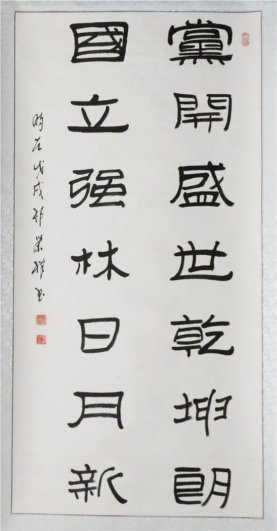 黨開盛世乾坤朗
國立強林日月新
時在戊戌